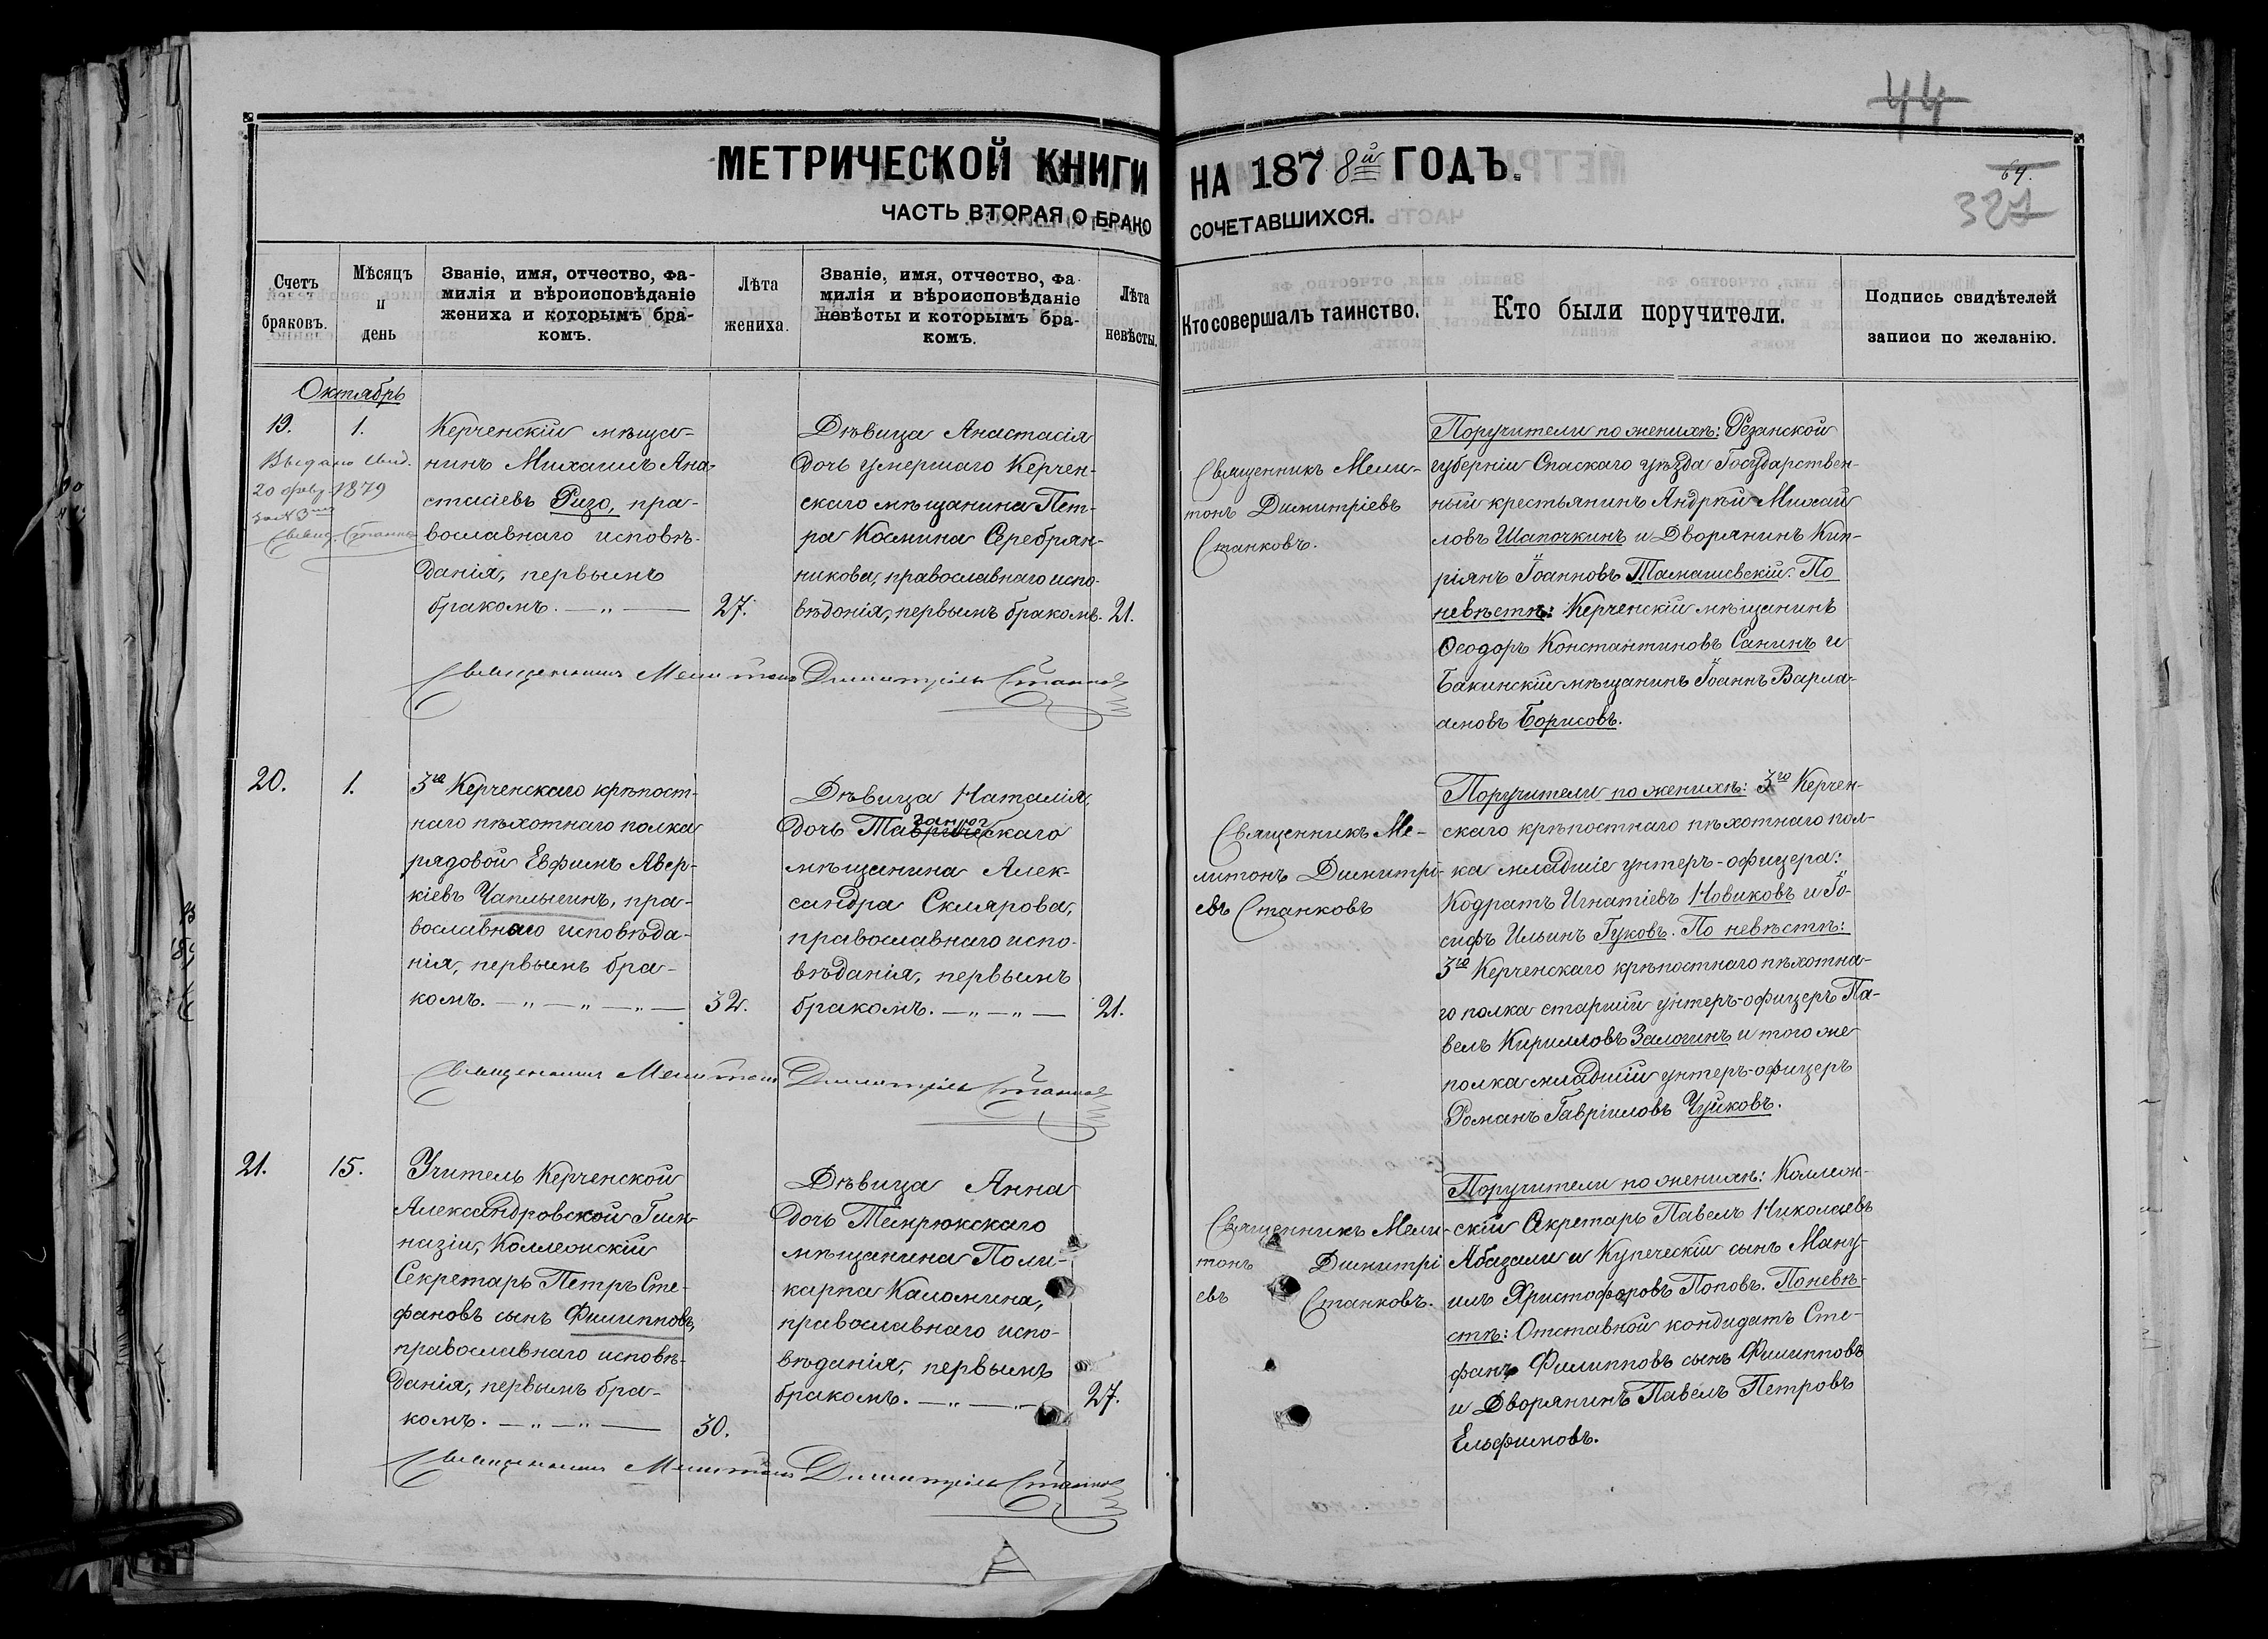 44
64.
327
МЕТРИЧЕСКОЙ КНИГИ НА 1878й ГОДЪ.
ЧАСТЬ ВТОРАЯ О БРАКОСОЧЕТАВШИХСЯ.
Счетъ
браковъ.
Мѣсяцъ
и
день
Званіе, имя, отчество, фа-
милія и вѣроисповѣданіе
жениха и которымъ бра-
комъ.
Лѣта
жениха.
Званіе, имя, отчество, фа-
милія и вѣроисповѣданіе
невѣсты и которымъ бра-
комъ.
Лѣта
невѣсты.
Кто совершалъ таинство.
Кто были поручители.
Подпись свидѣтелей
записи по желанію.
Октябрь
19.
1.
Выдано свид.
20 февр 1879
за № 3
Свящ. Станков
Керченскій мѣща-
нинъ Михаилъ Ана-
стасіевъ Ризо, пра-
вославнаго исповѣ-
данія, первымъ
бракомъ. — „ —
27.
Дѣвица Анастасія
дочь умершаго Керчен-
скаго мѣщанина Пет-
ра Космина Серебрян-
никова, православнаго испо-
вѣдонія, первымъ бракомъ.
21.
Священникъ Мели-
тонъ Димитріевъ
Станковъ.
Поручители по женихѣ: Резанской
губерніи Спаскаго уѣзда Государствен-
ный крестьянинъ Андрей Михай
ловъ Шапочкинъ и Дворянинъ Кип-
ріянъ Іоанновъ Талашевскій. По
невѣстѣ: Керченскій мѣщанинъ
Ѳеодоръ Константиновъ Санинъ и
Бакинскій мѣщанинъ Іоаннъ Варла-
амовъ Борисовъ.
Священникъ Мелитонъ Димитріевъ Станковъ
20.
1.
3го Керченскаго крѣпост-
наго пѣхотнаго полка
рядовой Евфимъ Авер-
кіевъ Чаплыгинъ, пра-
вославнаго исповѣда-
нія, первымъ бра-
комъ. — „ — „ — „ —
32.
Дѣвица Наталія,
ганрог
дочь Таврическаго
мѣщанина Алек-
сандра Склярова,
православнаго испо-
вѣданія, первымъ
бракомъ. — „ — „ —
21.
Священникъ Ме-
литонъ Димитрі-
евъ Станковъ
Поручители по женихѣ: 3го Керчен-
скаго крѣпостнаго пѣхотнаго пол-
ка младшіе унтеръ-офицера:
Кодратъ Игнатіевъ Новиковъ и Іо-
сифъ Ильинъ Гуковъ. По невѣстѣ:
3го Керченскаго крѣпостнаго пѣхотна-
го полка старшій унтеръ-офицеръ Па-
велъ Кирилловъ Залогинъ и того же
полка младшій унтеръ-офицеръ
Романъ Гавріиловъ Чуйковъ.
Священникъ Мелитонъ Димитріевъ Станковъ
21.
15.
Учитель Керченской
Александровской Гим-
назіи, Коллежскій
Секретарь Петръ Сте-
фановъ сынъ Филипповъ,
православнаго исповѣ-
данія, первымъ бра-
комъ. — „ — „ —
30.
Дѣвица Анна
дочь Темрюкскаго
мѣщанина Поли-
карпа Каломина,
православнаго испо-
вѣданія, первымъ
бракомъ. — „ — „ —
27.
Священникъ Мели-
тонъ Димитрі
евъ Станковъ.
Поручители по женихѣ: Коллеж-
скій Секретарь Павелъ Николаевъ
Абазали и Купеческій сынъ Ману-
илъ Христофоровъ Поповъ. По невѣ-
стѣ: Отставной кондидатъ Сте-
фанъ Филипповъ сынъ Филипповъ
и Дворянинъ Павелъ Петровъ
Ельфимовъ.
Священникъ Мелитонъ Димитріевъ Станковъ